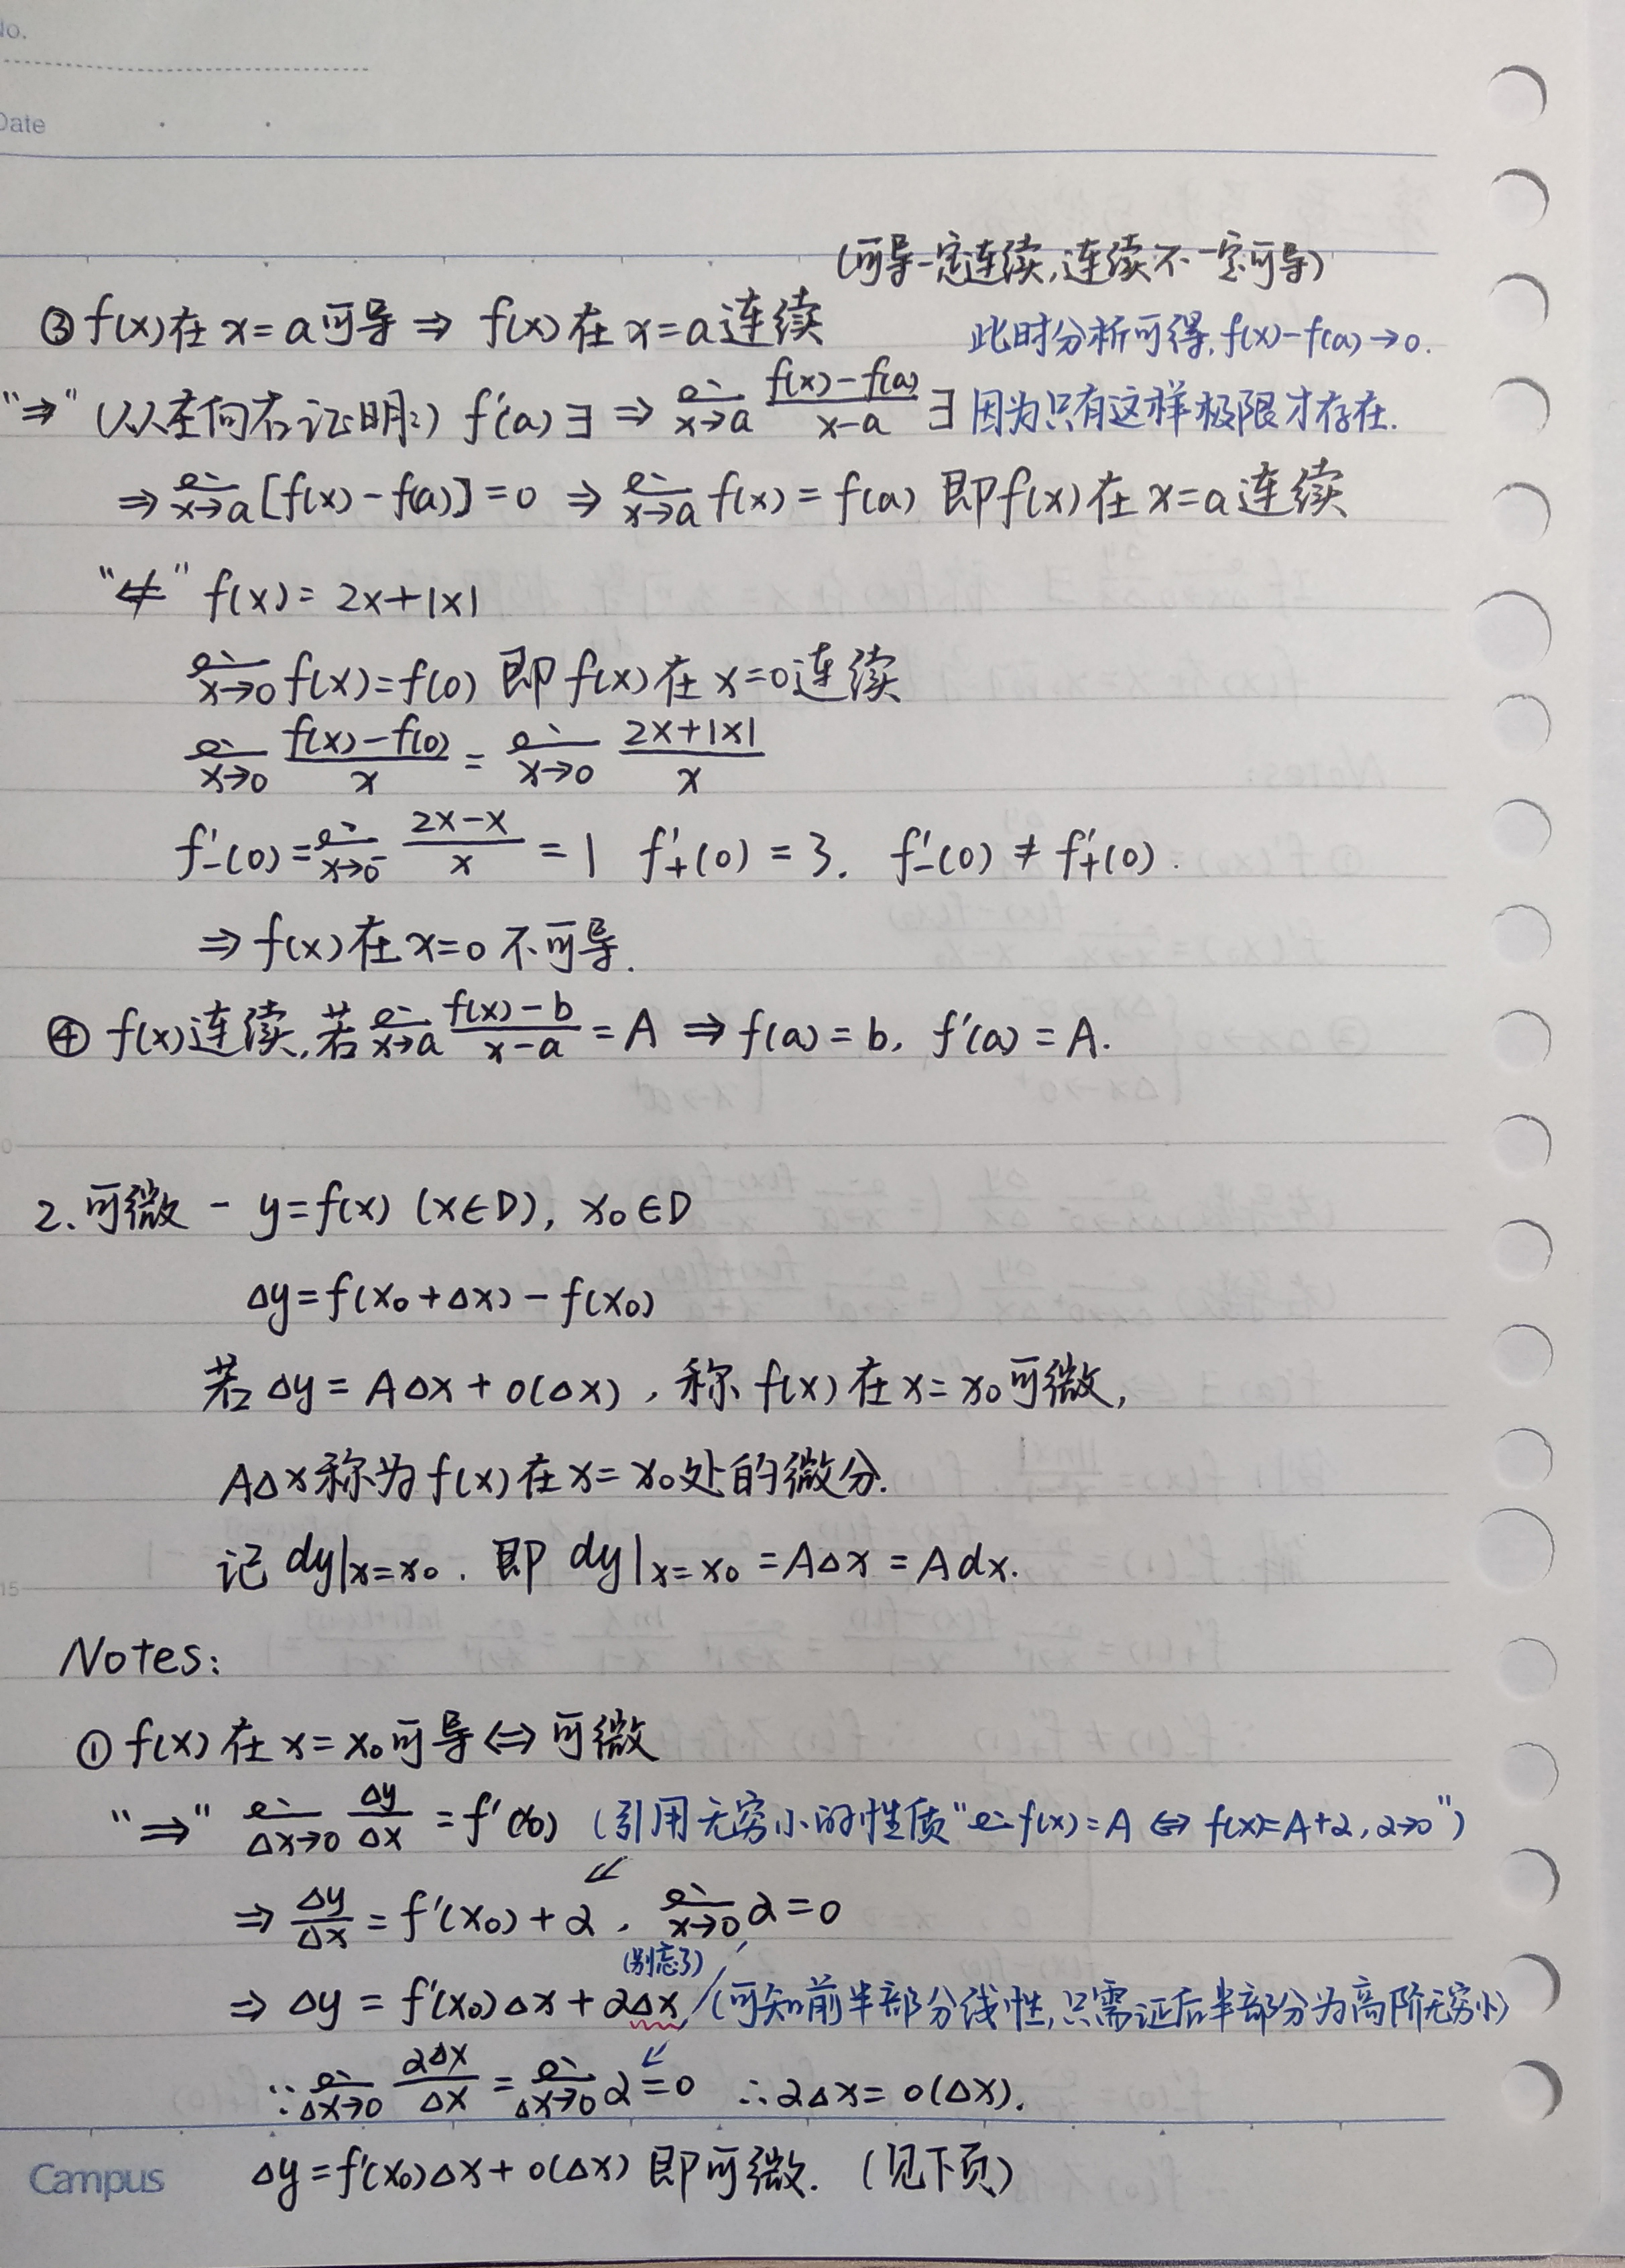 No.
Date
(可导一定连续,连续不一定可导)
③ f(x)在 x=a可导 ⇒ f(x)在 x=a连续
此时分析可得, f(x)-f(a)→0.
"⇒" (从左向右证明:) f'(a)∃ ⇒ lim_{x→a} (f(x)-f(a))/(x-a) ∃ 因为只有这样极限才存在.
⇒ lim_{x→a} [f(x)-f(a)]=0 ⇒ lim_{x→a} f(x)=f(a) 即f(x)在 x=a连续
"⇍" f(x)= 2x+|x|
lim_{x→0} f(x)=f(0) 即 f(x)在 x=0连续
lim_{x→0} (f(x)-f(0))/x = lim_{x→0} (2x+|x|)/x
f'₋(0)= lim_{x→0⁻} (2x-x)/x = 1 f'₊(0) = 3. f'₋(0) ≠ f'₊(0).
⇒ f(x)在 x=0 不可导.
④ f(x)连续,若 lim_{x→a} (f(x)-b)/(x-a) = A ⇒ f(a)=b, f'(a)=A.
2.可微 - y=f(x) (x∈D), x₀∈D
Δy=f(x₀+Δx)-f(x₀)
若 Δy= AΔx + o(Δx), 称 f(x)在 x=x₀可微,
AΔx称为f(x)在 x=x₀处的微分.
记 dy|x=x₀. 即 dy|x=x₀ =AΔx = Adx.
Notes:
① f(x)在 x=x₀可导⇔可微
"⇒" lim_{Δx→0} Δy/Δx = f'(x₀) (引用无穷小的性质"lim f(x)=A ⇔ f(x)=A+α, α→0")
⇒ Δy/Δx = f'(x₀)+α, lim_{x→0} α=0
(别忘了)
⇒ Δy = f'(x₀)Δx+αΔx (可知前半部分线性,只需证后半部分为高阶无穷小)
∵ lim_{Δx→0} αΔx/Δx = lim_{Δx→0} α=0 ∴αΔx= o(Δx).
Δy=f'(x₀)Δx+o(Δx) 即可微. (见下页)
Campus